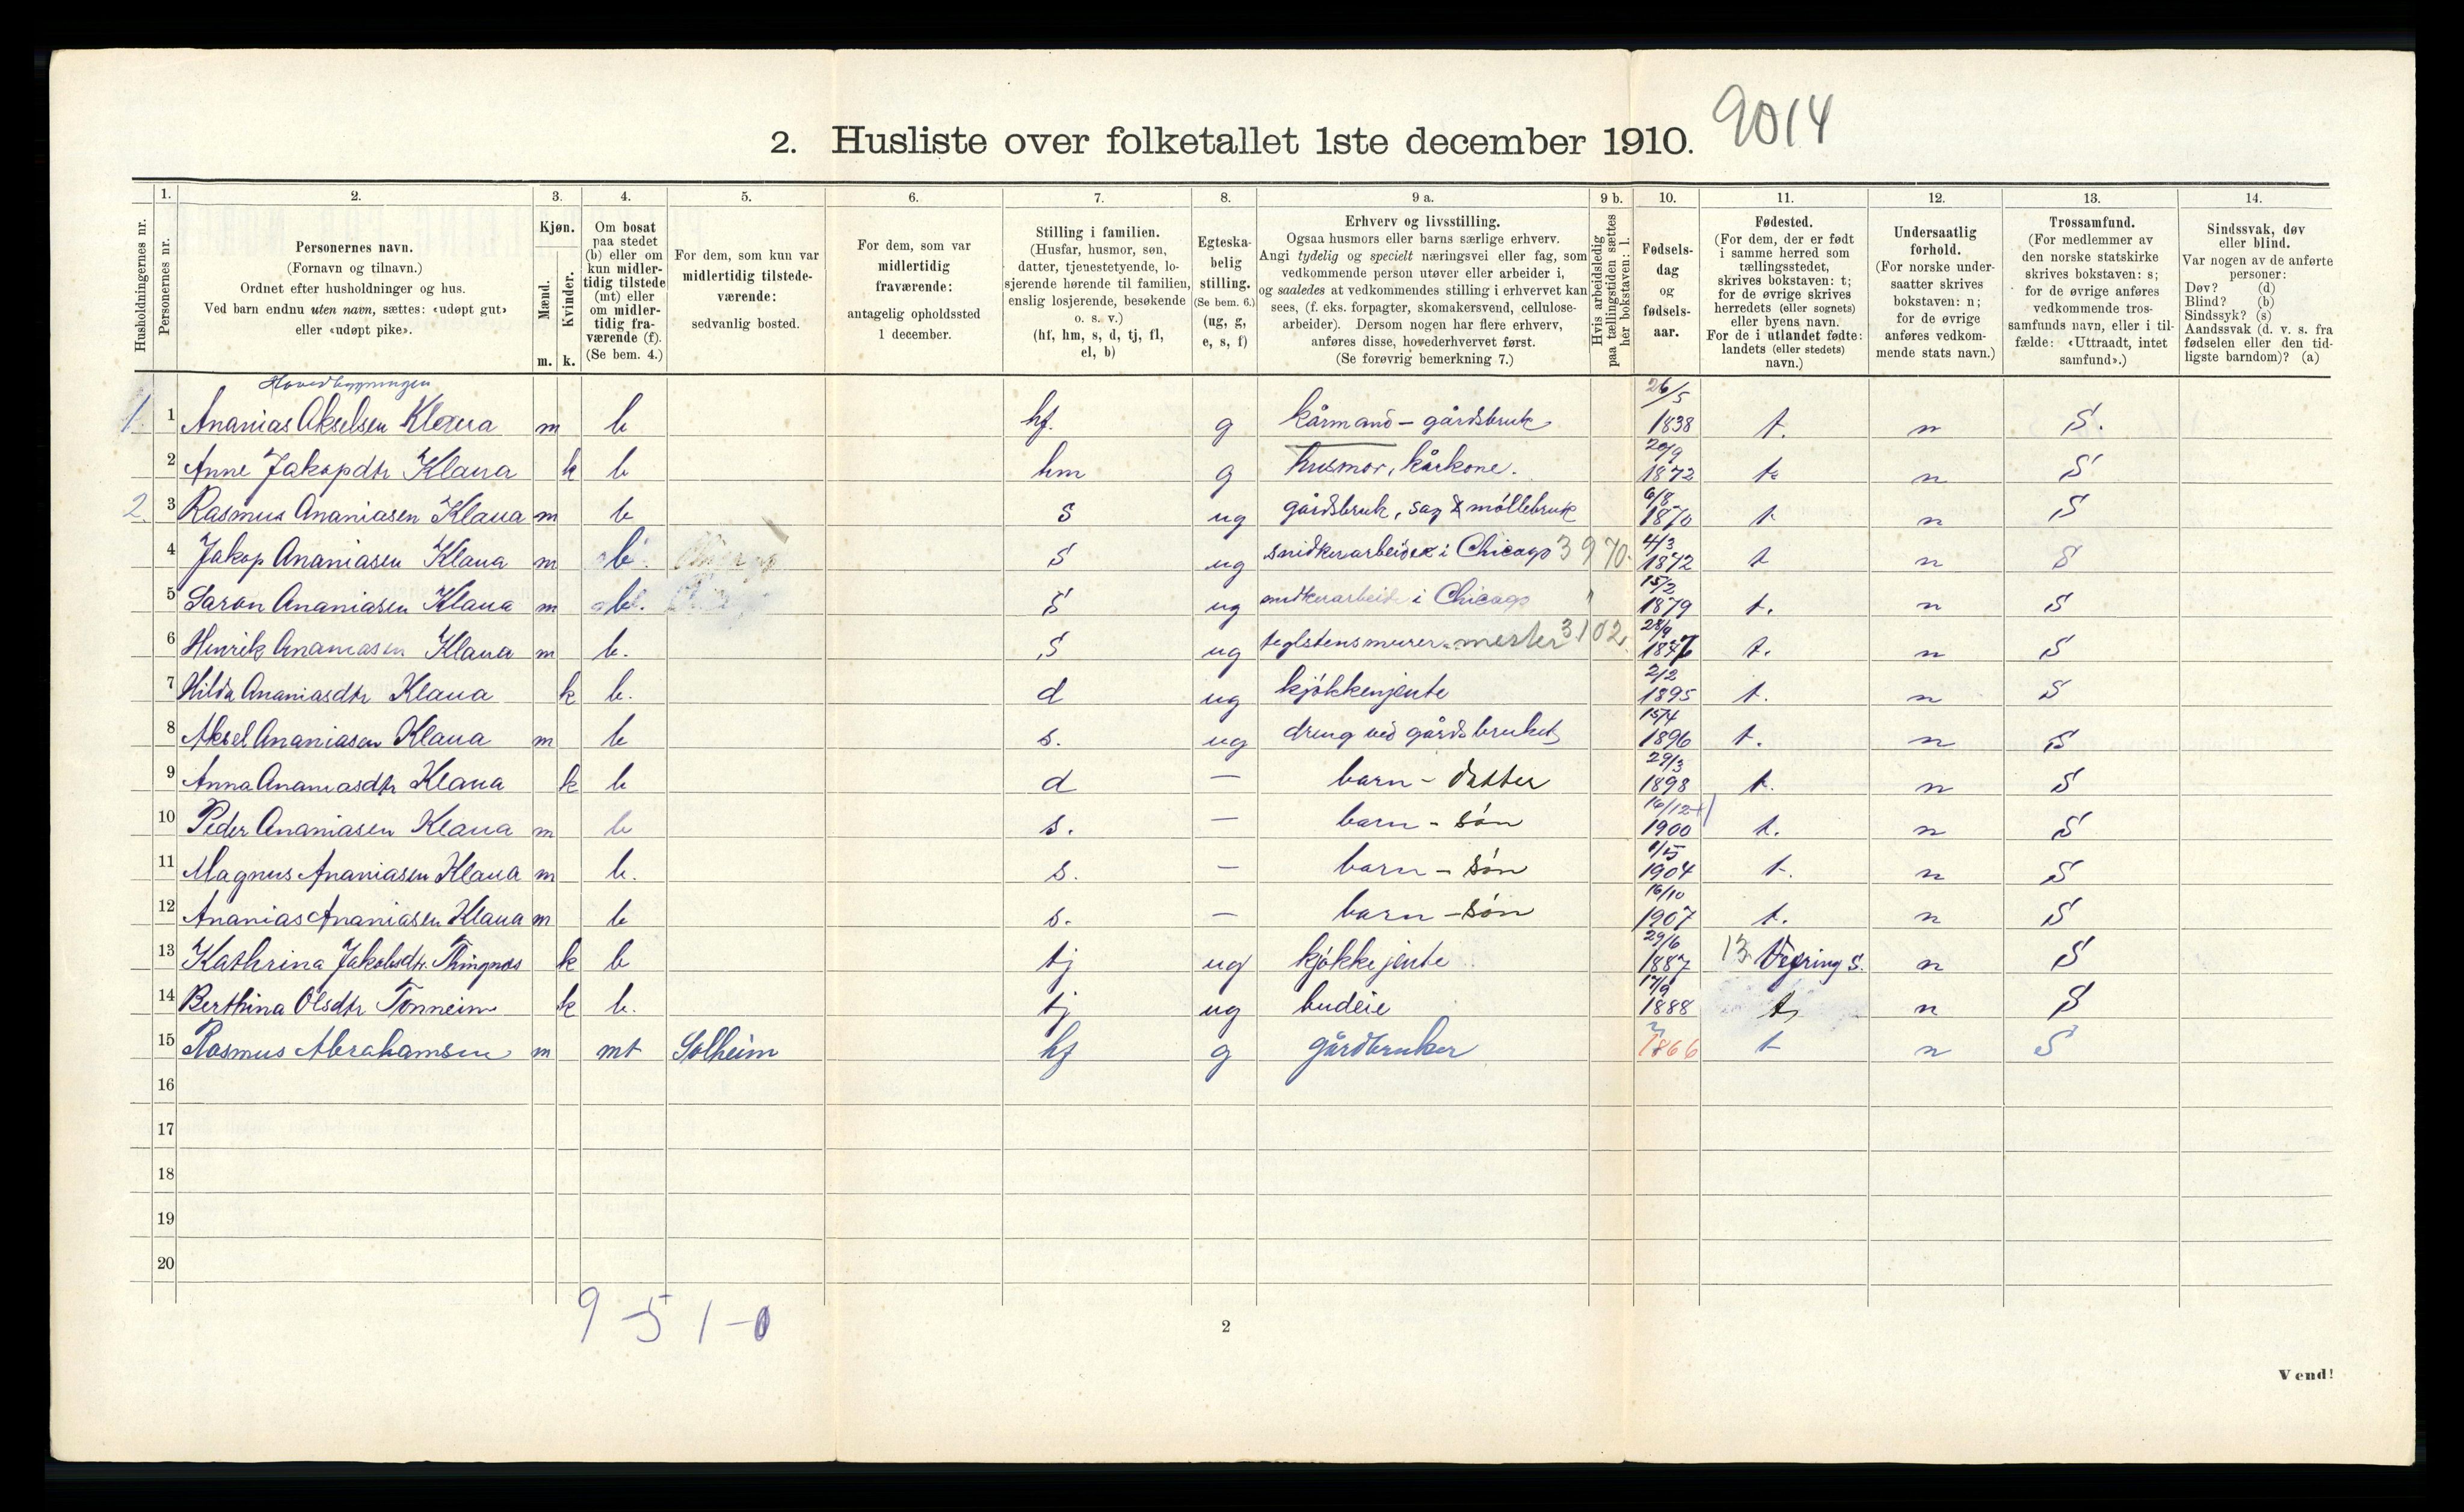 2. Husliste over folketallet 1ste december 1910. 9014
Husholdningernes nr.
1. Personernes nr.
2. Personernes navn.
(Fornavn og tilnavn.)
Ordnet efter husholdninger og hus.
Ved barn endnu uten navn, sættes: «udøpt gut»
eller «udøpt pike».
3. Kjøn.
Mænd. m.
Kvinder. k.
4. Om bosat
paa stedet
(b) eller om
kun midler-
tidig tilstede
(mt) eller
om midler-
tidig fra-
værende (f).
(Se bem. 4.)
5. For dem, som kun var
midlertidig tilstede-
værende:
sedvanlig bosted.
6. For dem, som var
midlertidig
fraværende:
antagelig opholdssted
1 december.
7. Stilling i familien.
(Husfar, husmor, søn,
datter, tjenestetyende, lo-
sjerende hørende til familien,
enslig losjerende, besøkende
o. s. v.)
(hf, hm, s, d, tj, fl,
el, b)
8. Egteska-
belig
stilling.
(Se bem. 6.)
(ug, g,
e, s, f)
9 a. Erhverv og livsstilling.
Ogsaa husmors eller barns særlige erhverv.
Angi tydelig og specielt næringsvei eller fag, som
vedkommende person utøver eller arbeider i,
og saaledes at vedkommendes stilling i erhvervet kan
sees, (f. eks. forpagter, skomakersvend, cellulose-
arbeider). Dersom nogen har flere erhverv,
anføres disse, hovederhvervet først.
(Se forøvrig bemerkning 7.)
9 b. Hvis arbeidsledig
paa tællingstiden sættes
her bokstaven: l.
10. Fødsels-
dag
og
fødsels-
aar.
11. Fødested.
(For dem, der er født
i samme herred som
tællingsstedet,
skrives bokstaven: t;
for de øvrige skrives
herredets (eller sognets)
eller byens navn.
For de i utlandet fødte:
landets (eller stedets)
navn.)
12. Undersaatlig
forhold.
(For norske under-
saatter skrives
bokstaven: n;
for de øvrige
anføres vedkom-
mende stats navn.)
13. Trossamfund.
(For medlemmer av
den norske statskirke
skrives bokstaven: s;
for de øvrige anføres
vedkommende tros-
samfunds navn, eller i til-
fælde: «Uttraadt, intet
samfund».)
14. Sindssvak, døv
eller blind.
Var nogen av de anførte
personer:
Døv? (d)
Blind? (b)
Sindssyk? (s)
Aandssvak (d. v. s. fra
fødselen eller den tid-
ligste barndom)? (a)
Hovedbygningen
1. 1 Ananias Akselsen Klaua m b hf. g kårmand - gårdsbruk 26/5 1838 t. n S.
2 Anne Jakopdtr Klaua k b hm g husmor, kårkone. 20/9 1872 t. n S
2 3 Rasmus Ananiasen Klaua m b s ug gårdsbruk, sag & møllebruk 6/8 1870 t n S
4 Jakop Ananiasen Klaua m b s ug snidkerarbeider i Chicago 3970. 4/3 1872 t n S
5 Ananiasen Klaua m b. s ug snidkerarbeide i Chicago 15/2 1879 t. n S
6 Henrik Ananiasen Klaua m b. s ug teglstensmurer mester 3102 28/9 t. n S
7 Hilda Ananiasdtr Klaua k b. d ug kjøkkenjente 2/2 1895 t. n S
8 Aksel Ananiasen Klaua m b s. ug dreng ved gårdsbruket 15/4 1896 t. n S
9 Anna Ananiasdtr Klaua k b d — barn - datter 29/3 1898 t. n S
10 Peder Ananiasen Klaua m b s. — barn - søn 16/12 1900 t. n S
11 Magnus Ananiasen Klaua m b. s. — barn - søn 1904 t. n S
12 Ananias Ananiasen Klaua m b s. — barn - søn 16/10 1907 t. n S
13 Kathrina Jakobsdtr. Thingnes k b tj ug kjøkkejente 29/6 1887 13 S. n S
14 Berthina Olsdtr Tonneim k b. tj ug budeie 17/9 1888 t n S
15 Rasmus Abrahamsen m mt Solheim hf g gårdbruker 1866 t n S
16
17
18
19
20
9 - 5 1 - 0
2
Vend!